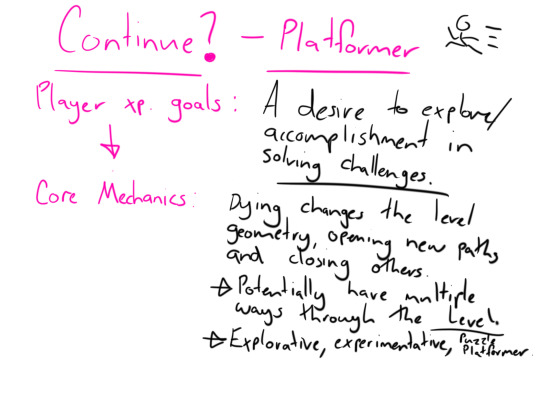 Continue? - Platformer
Player xp. goals: A desire to explore/
accomplishment in
solving challenges.
Core Mechanics: Dying changes the level
geometry, opening new paths,
and closing others.
→ Potentially have multiple
ways through the Level.
→ Explorative, experimentative, Puzzle
Platformer.